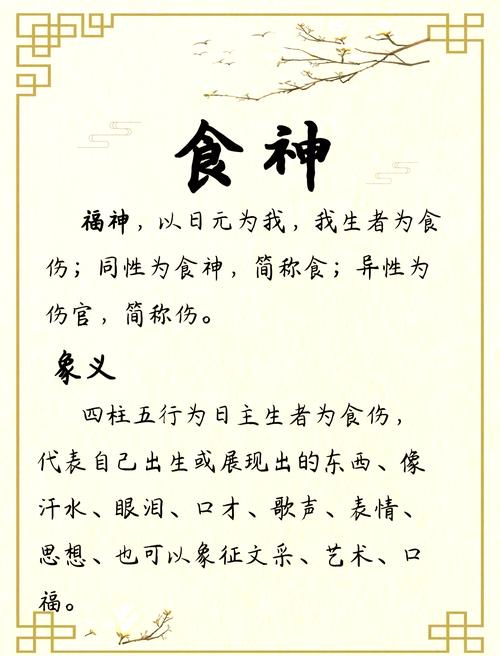 食神
福神，以日元为我，我生者为食
伤；同性为食神，简称食；异性为
伤官，简称伤。
象义
四柱五行为日主生者为食伤，
代表自己出生或展现出的东西、像
汗水、眼泪、口才、歌声、表情、
思想、也可以象征文采、艺术、口
福。